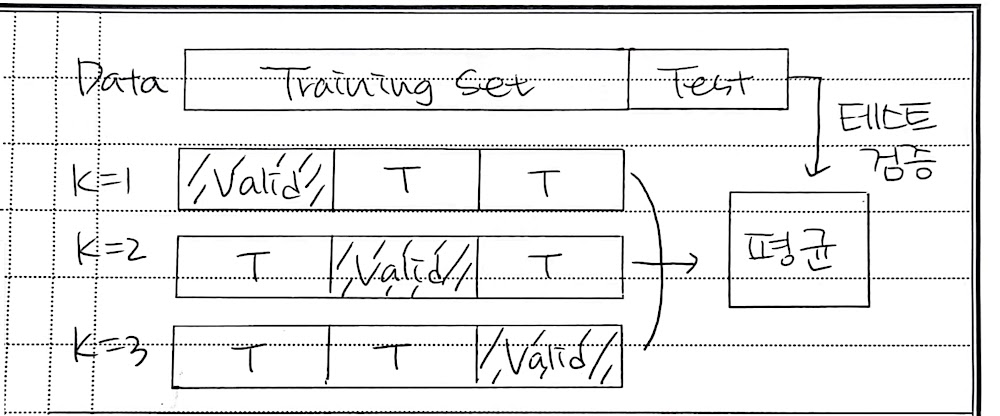 Data Training Set Test
테스트
검증
K=1 Valid T T
K=2 T Valid T
평균
K=3 T T Valid